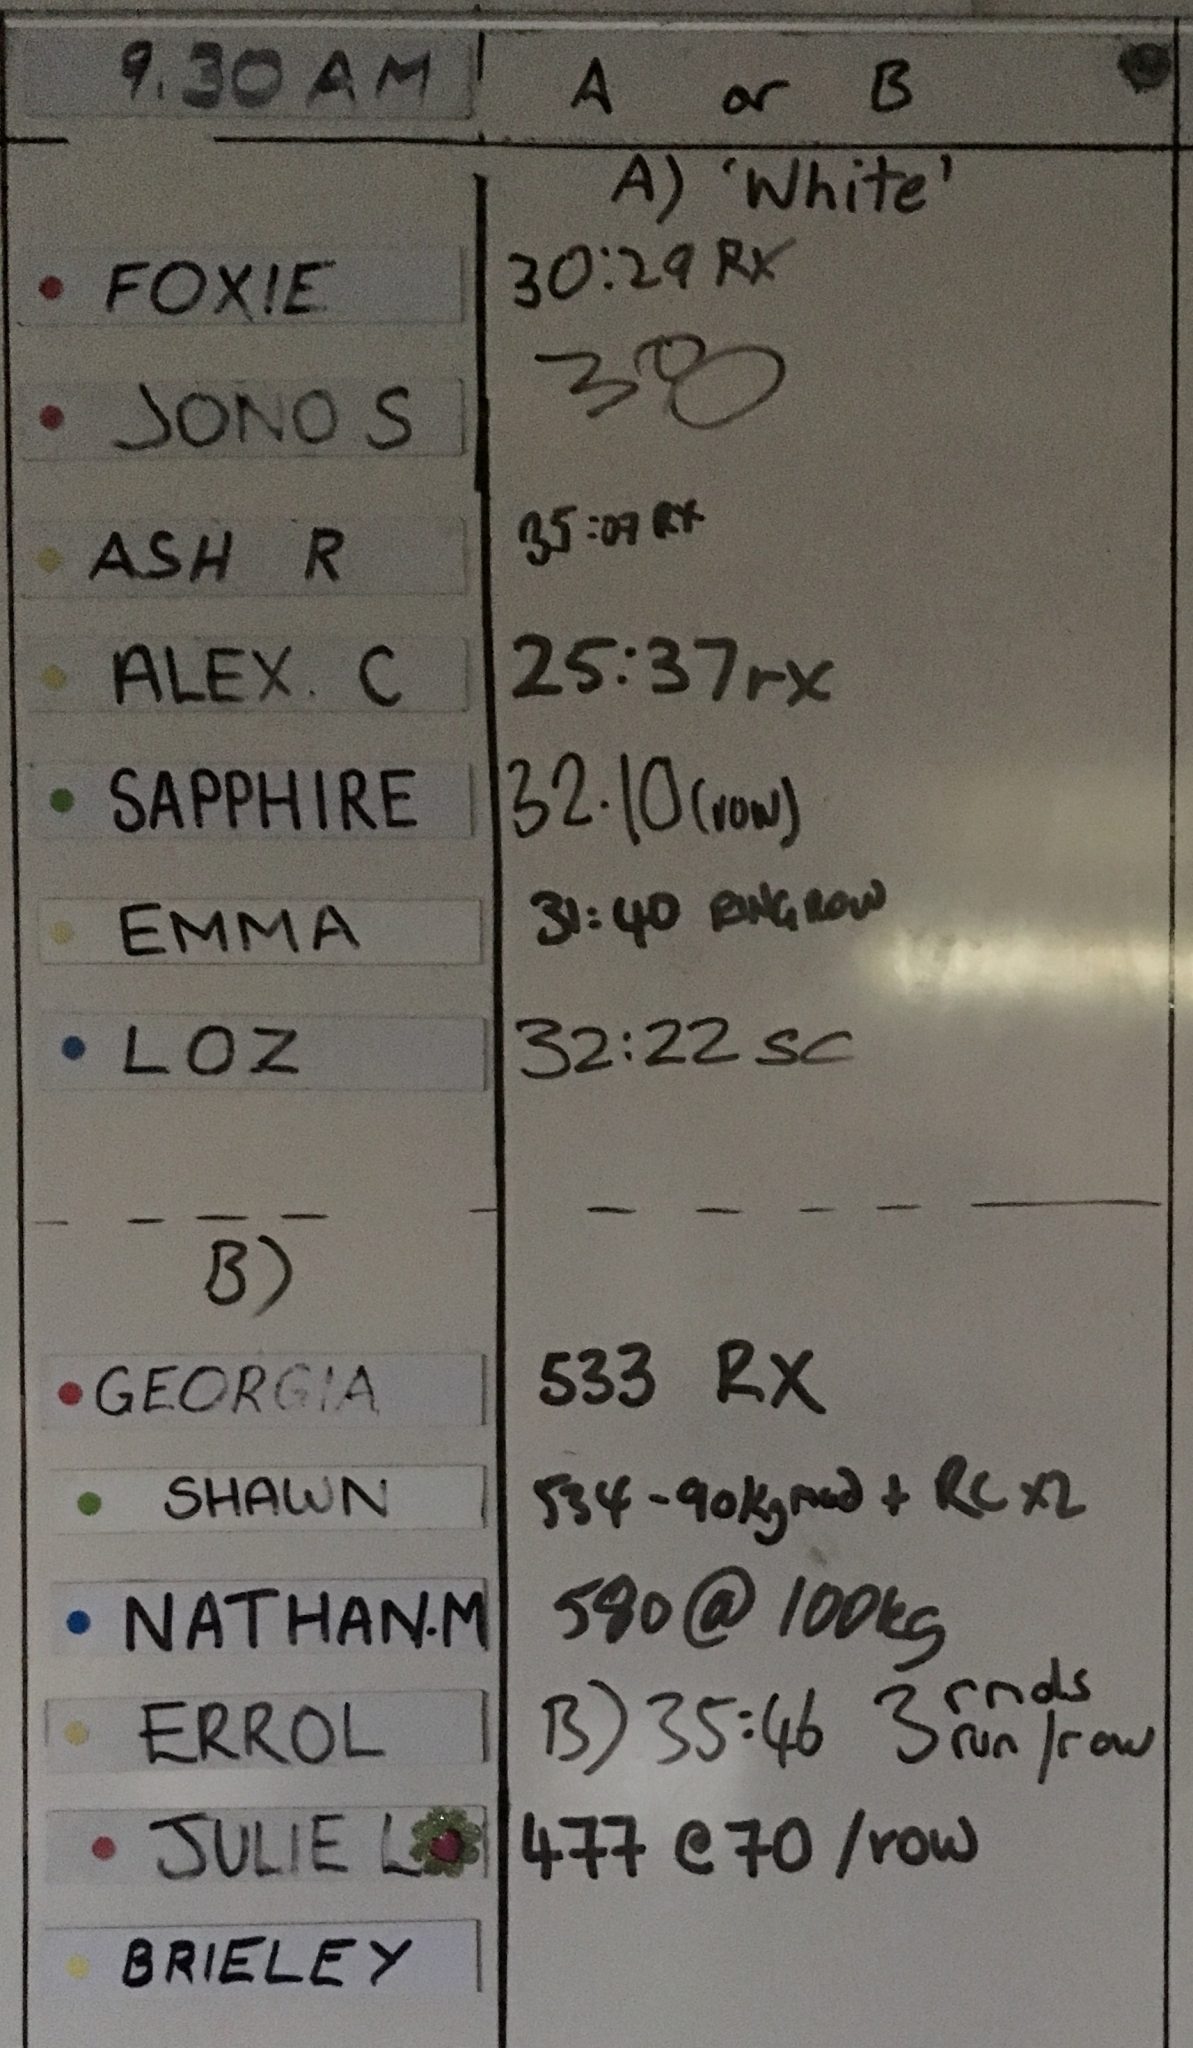 9.30 AM A or B
A) 'White'
FOXIE 30:29 RX
JONO S
ASH R 35:07 RX
ALEX. C 25:37 rx
SAPPHIRE 32.10 (row)
EMMA 31:40 RING ROW
LOZ 32:22 SC
B)
GEORGIA 533 RX
SHAWN 534 - 90kg + RC x2
NATHAN.M 580 @ 100kg
ERROL B) 35:46 3 rnds
run/row
JULIE L 477 @ 70 /row
BRIELEY